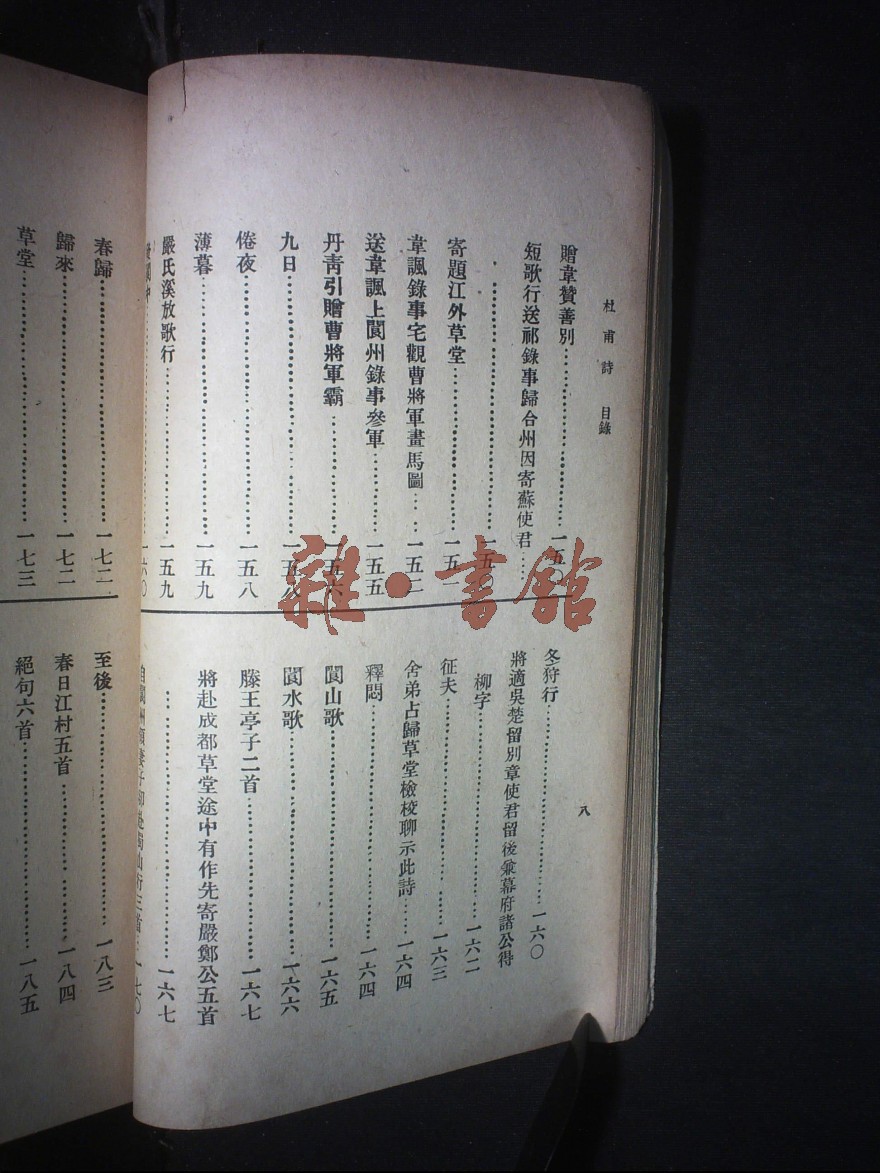 杜甫詩 目錄
贈韋贊善別……一五〇
短歌行送祁錄事歸合州因寄蘇使君…
……一五〇
寄題江外草堂……一五一
韋諷錄事宅觀曹將軍畫馬圖……一五二
送韋諷上閬州錄事參軍……一五五
丹靑引贈曹將軍霸……一五六
九日……一五八
倦夜……一五八
薄暮……一五九
嚴氏溪放歌行……一五九
……一六〇
八
冬狩行……一六〇
將適吳楚留別章使君留後兼幕府諸公得
柳字……一六二
征夫……一六三
舍弟占歸草堂檢校聊示此詩……一六四
釋悶……一六四
閬山歌……一六五
閬水歌……一六六
滕王亭子二首……一六七
將赴成都草堂途中有作先寄嚴鄭公五首
……一六七
自閬州領妻子卻赴蜀山行三首…一七〇
春歸……一七二
歸來……一七二
草堂……一七三
至後……一八三
春日江村五首……一八四
絕句六首……一八五
雜·書館